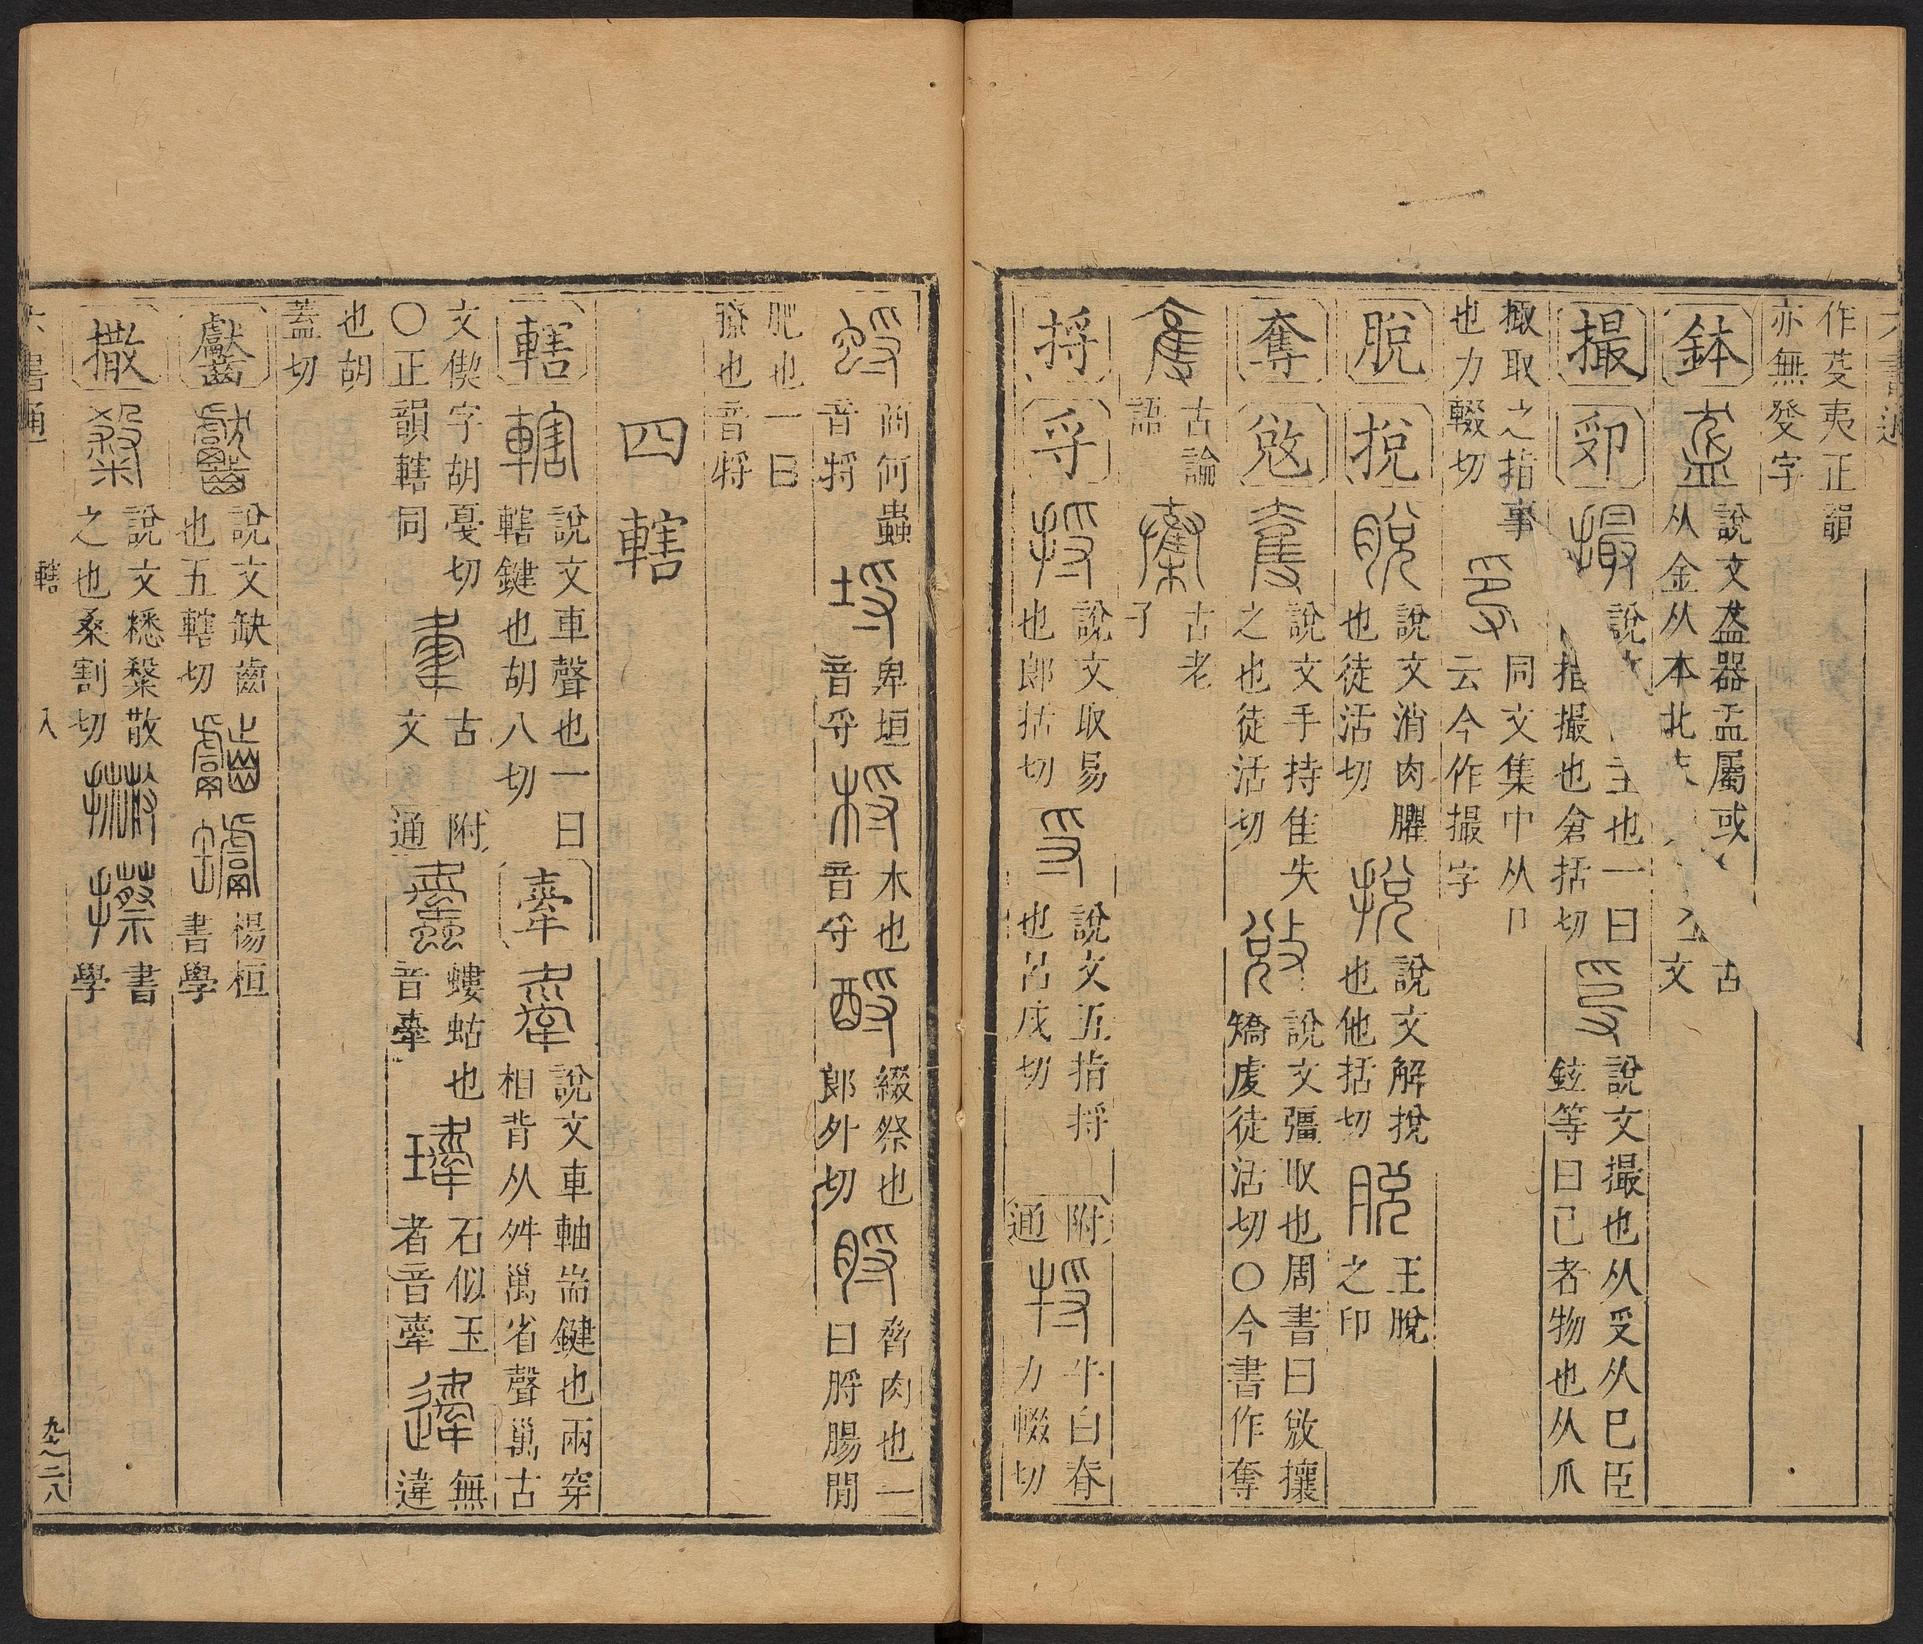 作芟夷正韻
亦無發字
鉢
說文盋器盂屬或
从金从本北
古
文
撮
說
指撮也倉括切
主也一曰
說文撮也从受从巳臣
鉉等曰已者物也从爪
𣪠取之指事
也力輟切
同文集中从卩
云今作撮字
脫 挩
說文消肉臞
也徒活切
說文解挩
也他括切
王脫
之印
奪 敓
說文手持隹失
之也徒活切
說文彊取也周書曰敓攘
矯虔徒活切〇今書作奪
古論
語
古老
子
捋 寽
說文取易
也郎括切
說文五指捋
也呂戌切
附
通
牛白脊
力輟切
商何蟲
音捋
卑垣
音寽
木也
音寽
綴祭也
郎外切
脅肉也一
曰脟腸閒
肥也一曰
膫也音捋
四轄
轄
說文車聲也一曰
轄鍵也胡八切
舝
說文車軸耑鍵也兩穿
相背从舛萬省聲𥜿古
文偰字胡戛切
〇正韻轄同
古
文
附
通
螻蛄也
音舝
石似玉
者音舝
無
違
也胡
蓋切
齾
說文缺齒
也五轄切
楊桓
書學
撒
說文𥻦䊝散
之也桑割切
書
學
六書通
轄
入
九之二八